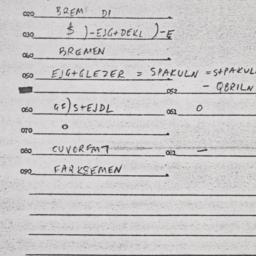 020 BREM DI
030 $ )-EJG+DEKL )-E
040 BREMEN
050 EJG+GLEZER = SPAKULN = S+PAKUL
052 - QBRILN
060 GE)S+EJDL 061 0
070 0
080 CUVOREMT 082 —
090 FARKSEMEN